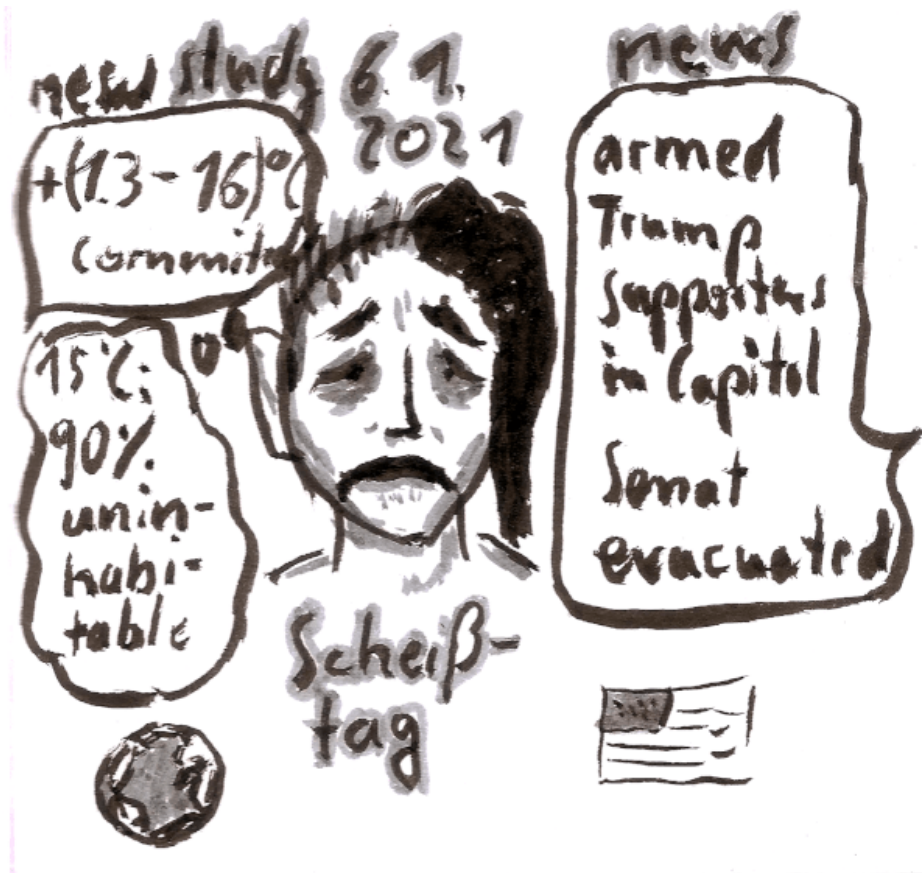 new study 6.1.
2021
+(13-16)°C
15°C:
90%
unin-
habi-
table
Scheiß-
tag
news
armed
Trump
supporters
in Capitol
Senat
evacuated